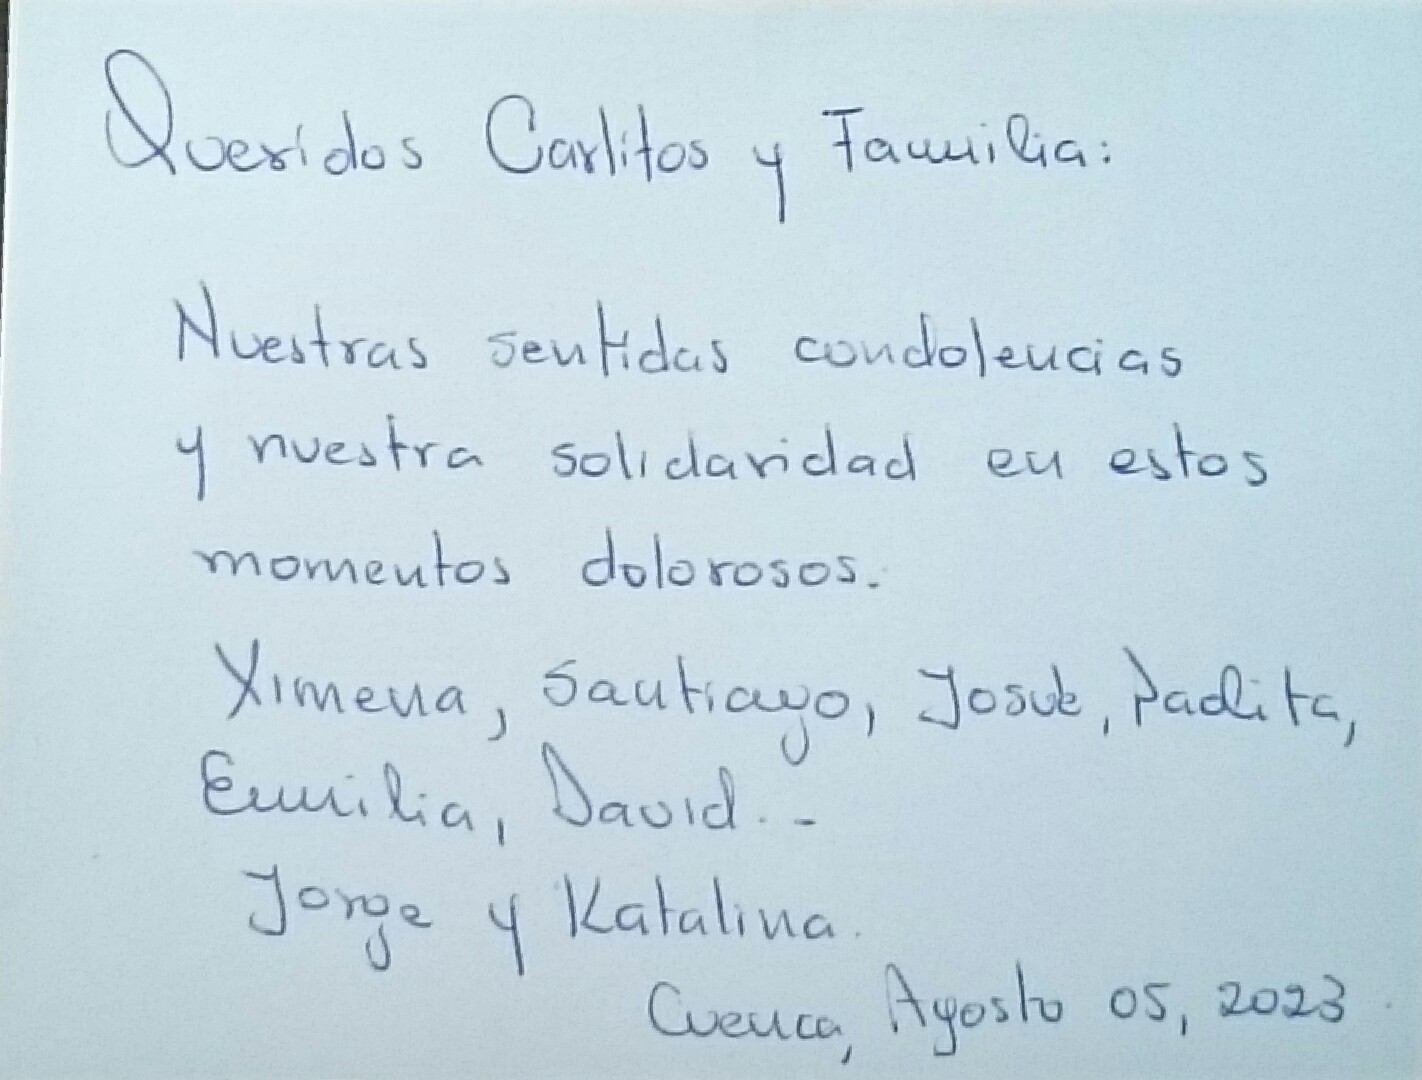 Queridos Carlitos y Familia:
Nuestras sentidas condolencias
y nuestra solidaridad en estos
momentos dolorosos.
Ximena, Santiago, Josué,
Emilia, David. -
Jorge y Katalina.
Cuenca, Agosto 05, 2023